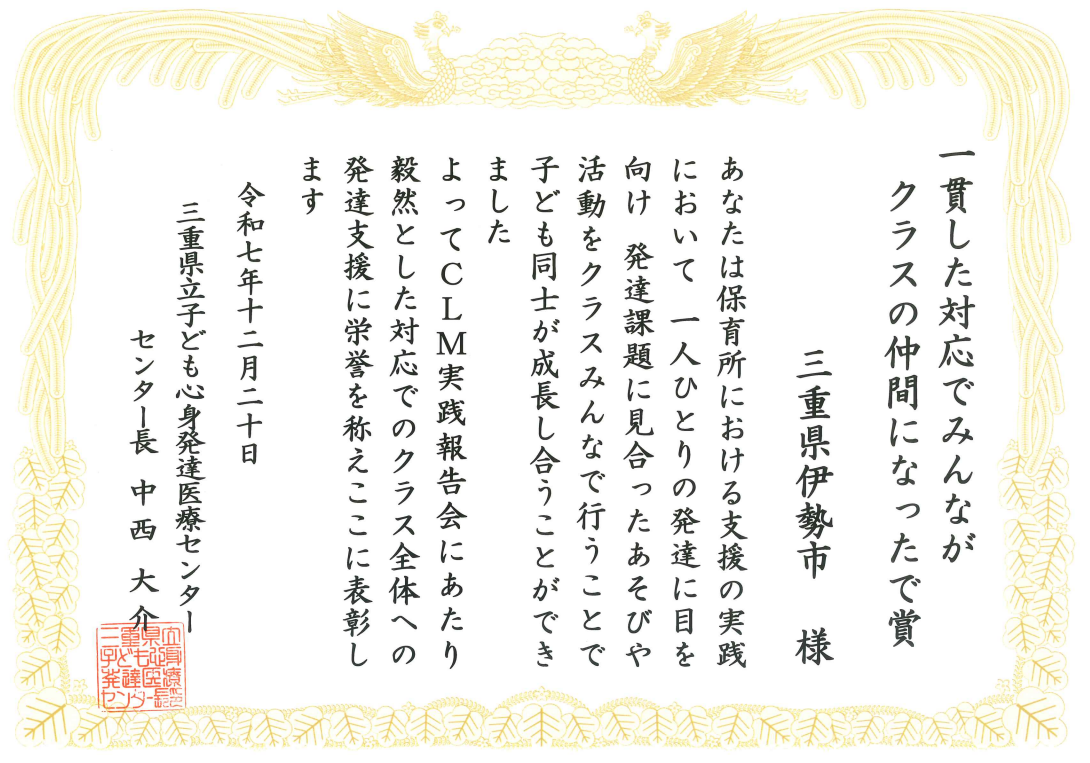 一貫した対応でみんなが
クラスの仲間になったで賞
三重県伊勢市　様
あなたは保育所における支援の実践
において　一人ひとりの発達に目を
向け　発達課題に見合ったあそびや
活動をクラスみんなで行うことで
子ども同士が成長し合うことができ
ました
よってＣＬＭ実践報告会にあたり
毅然とした対応でのクラス全体への
発達支援に栄誉を称えここに表彰し
ます
令和七年十二月二十日
三重県立子ども心身発達医療センター
センター長　中西　大介